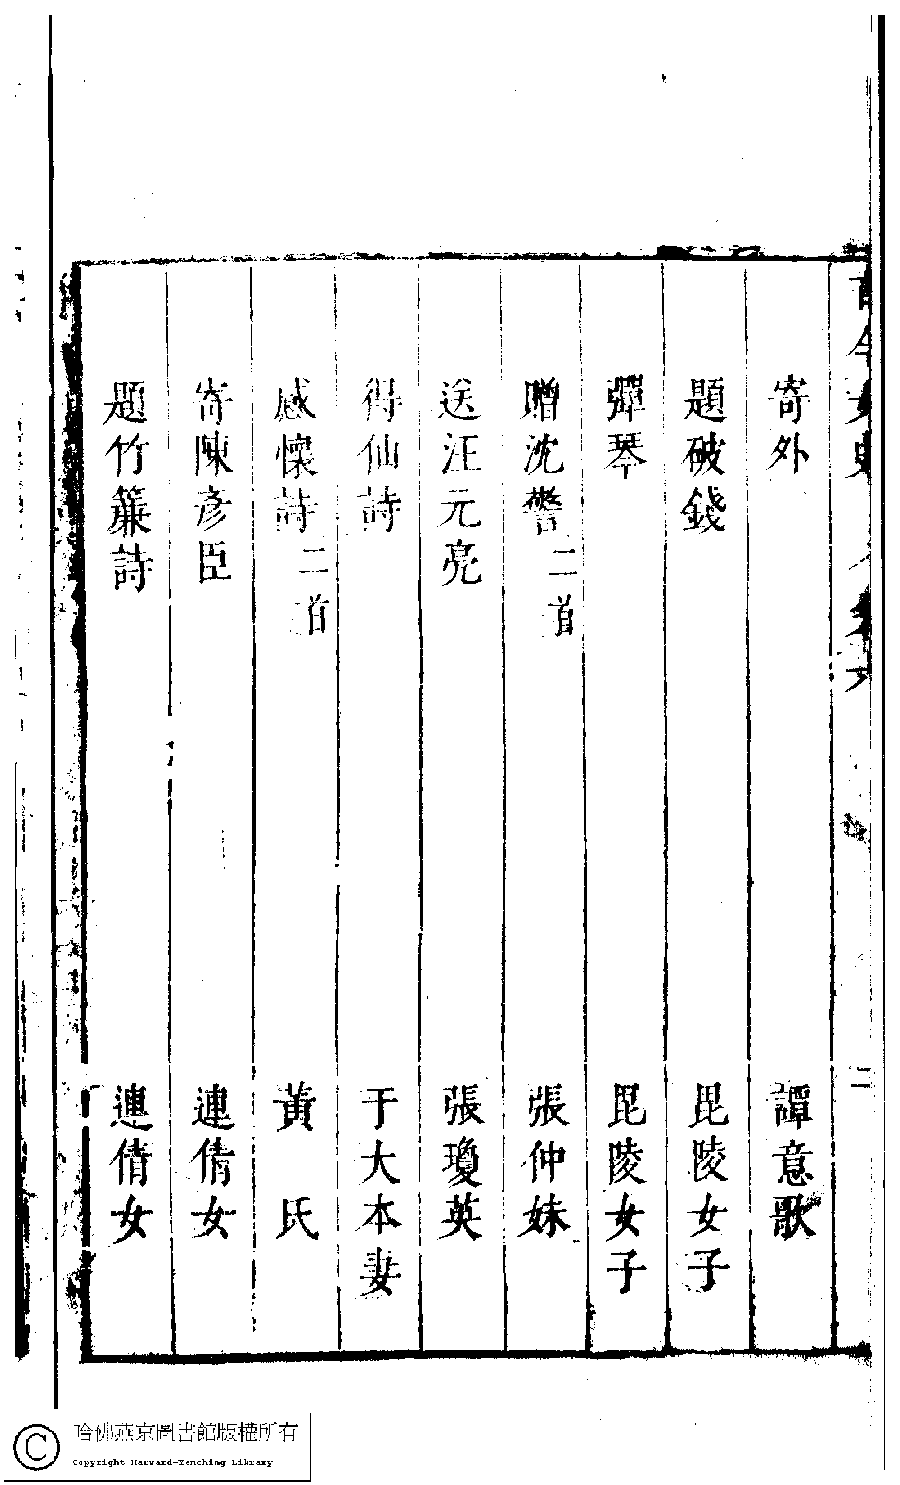 古今女史
卷六
二
寄外 譚意歌
題破錢 毘陵女子
彈琴 毘陵女子
贈沈警二首 張仲妹
送汪元亮 張瓊英
得仙詩 于大本妻
感懷詩二首 黃氏
寄陳彥臣 連倩女
題竹簾詩 連倩女
哈佛燕京圖書館版權所有
Copyright Harvard-Yenching Library